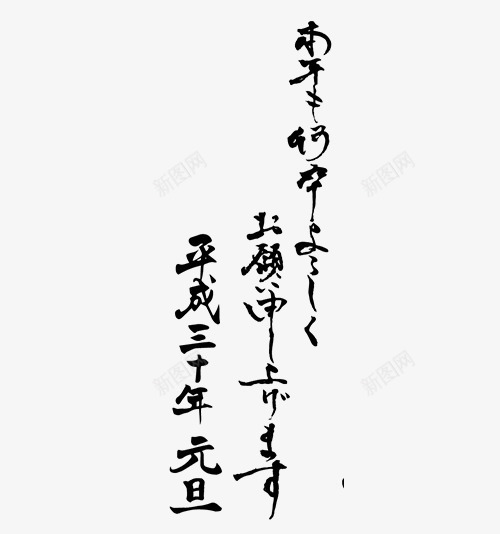 本年も何卒よろしく
お願い申し上げます
平成三十年 元旦
新图网
新图网
新图网
新图网